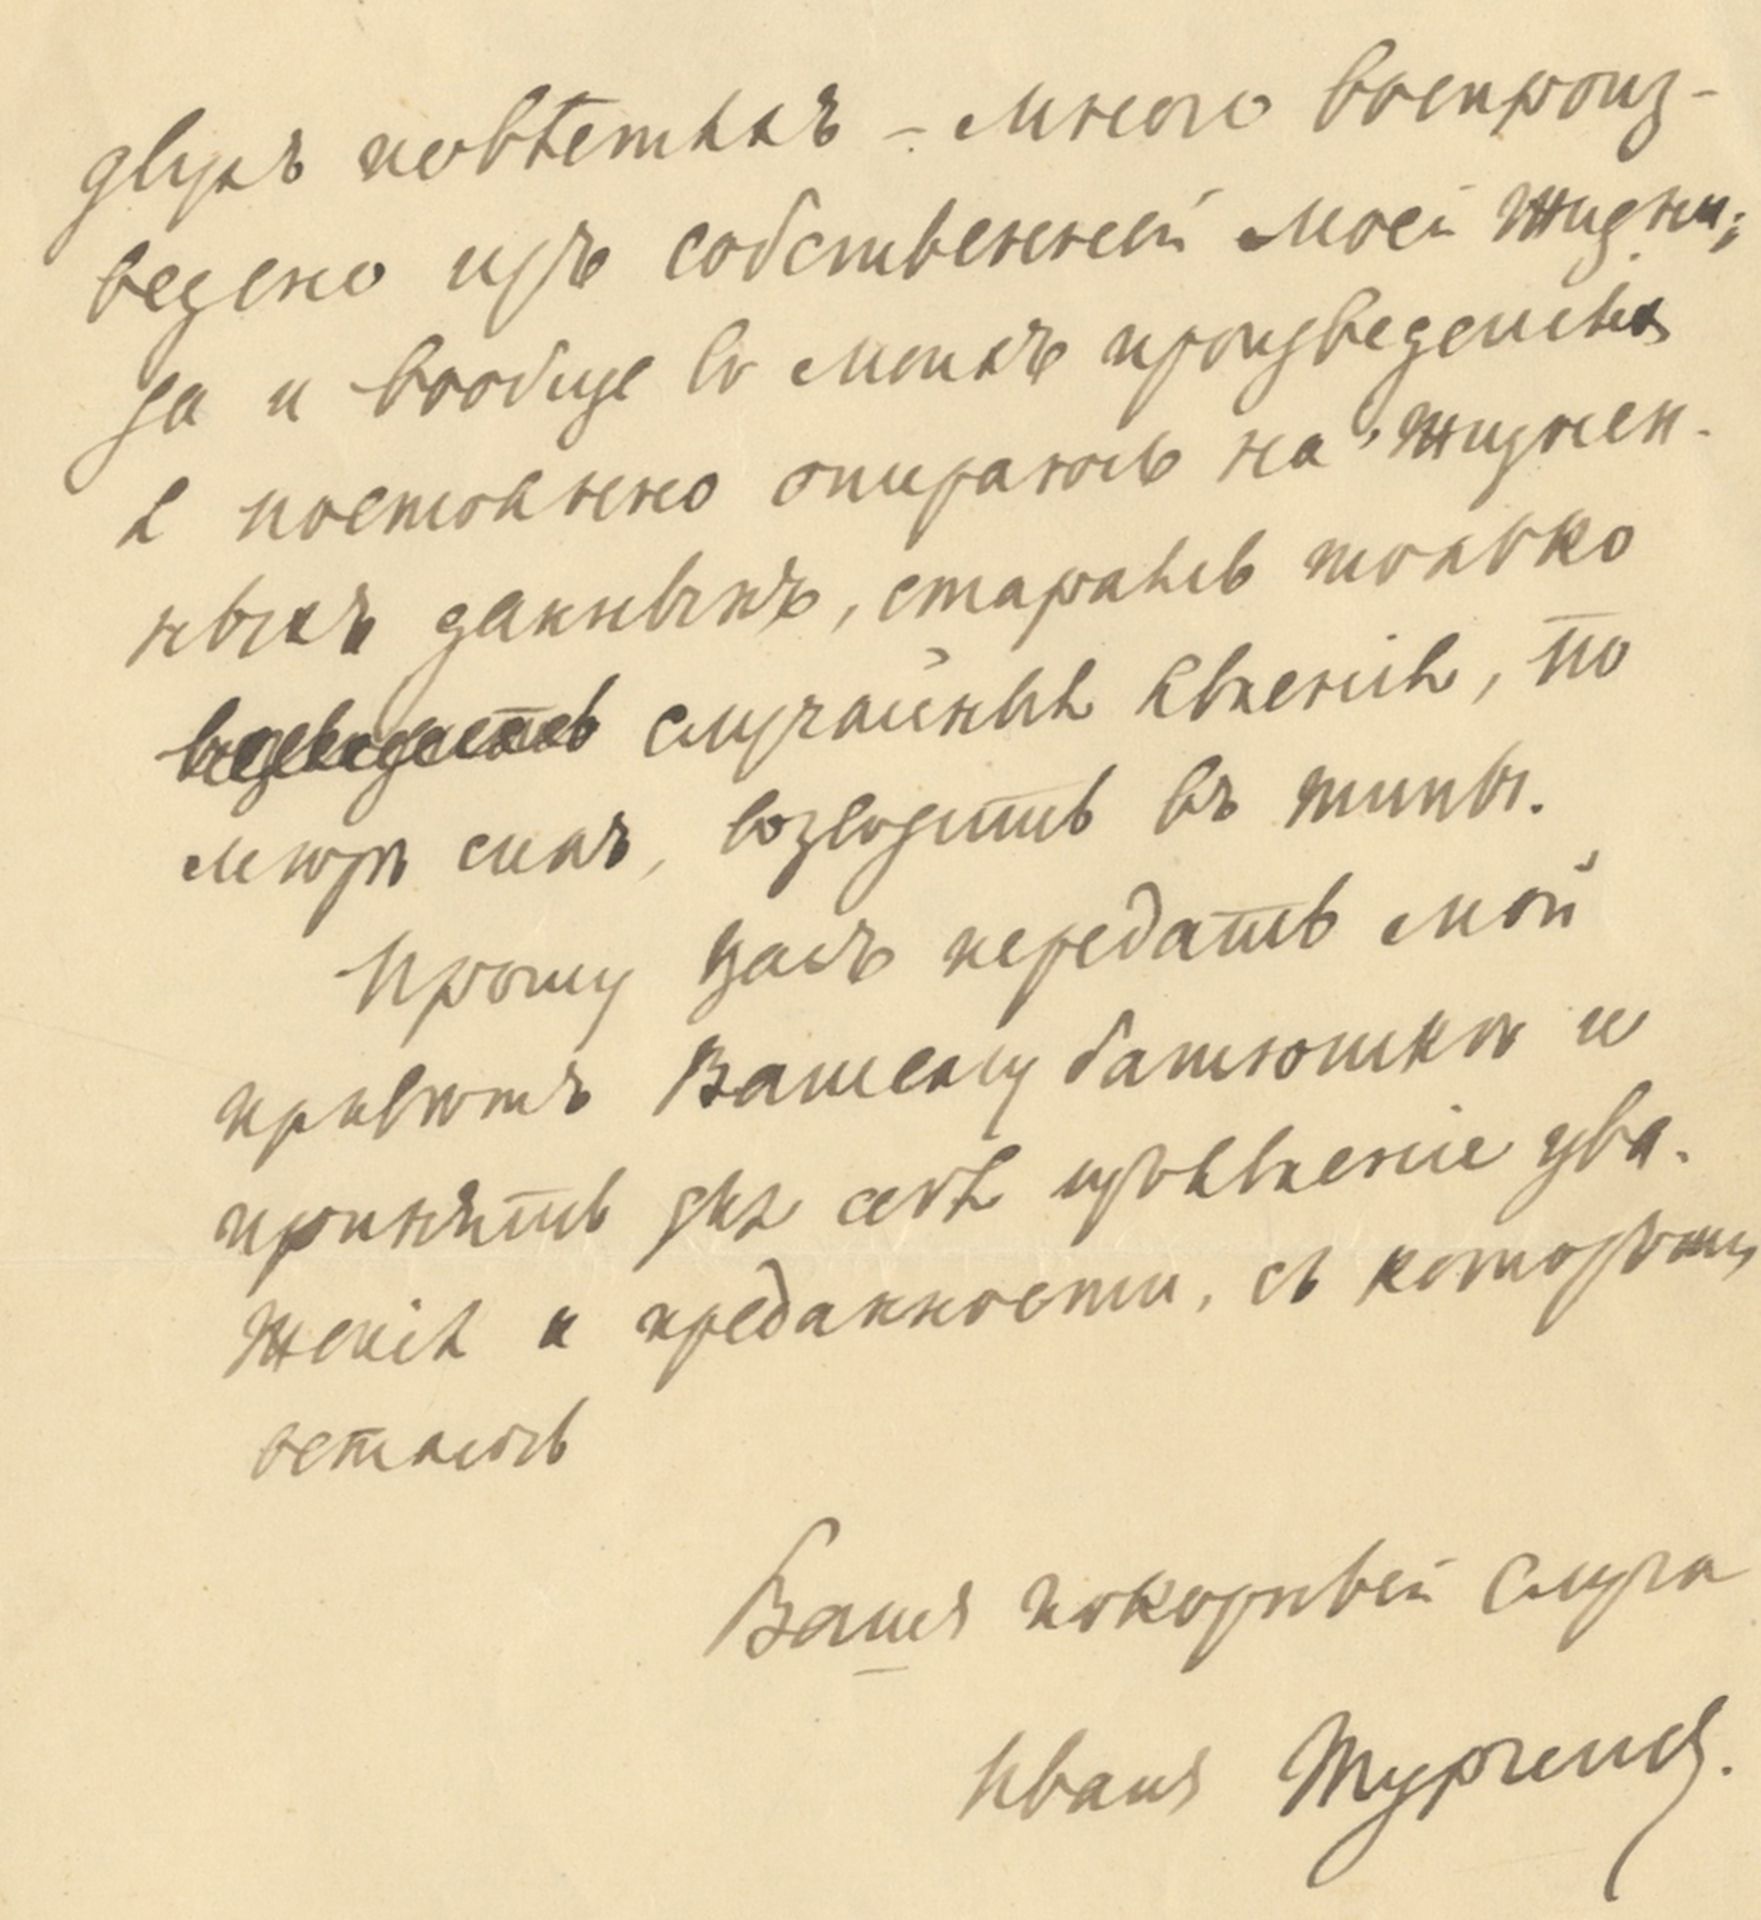 двухъ повѣстяхъ — много воспроиз-
ведено изъ собственной моей жизни;
да и вообще въ моихъ произведеніяхъ
я постоянно опираюсь на жизнен-
ныхъ данныхъ, стараясь только
случайныя явленія, по
мѣрѣ силъ, возводить въ типы.
Прошу Васъ передать мой
привѣтъ Вашему батюшкѣ и
принять для себя изъявленіе ува-
женія и преданности, съ которыми
остаюсь
Вашъ покорный слуга
Иванъ Тургеневъ.